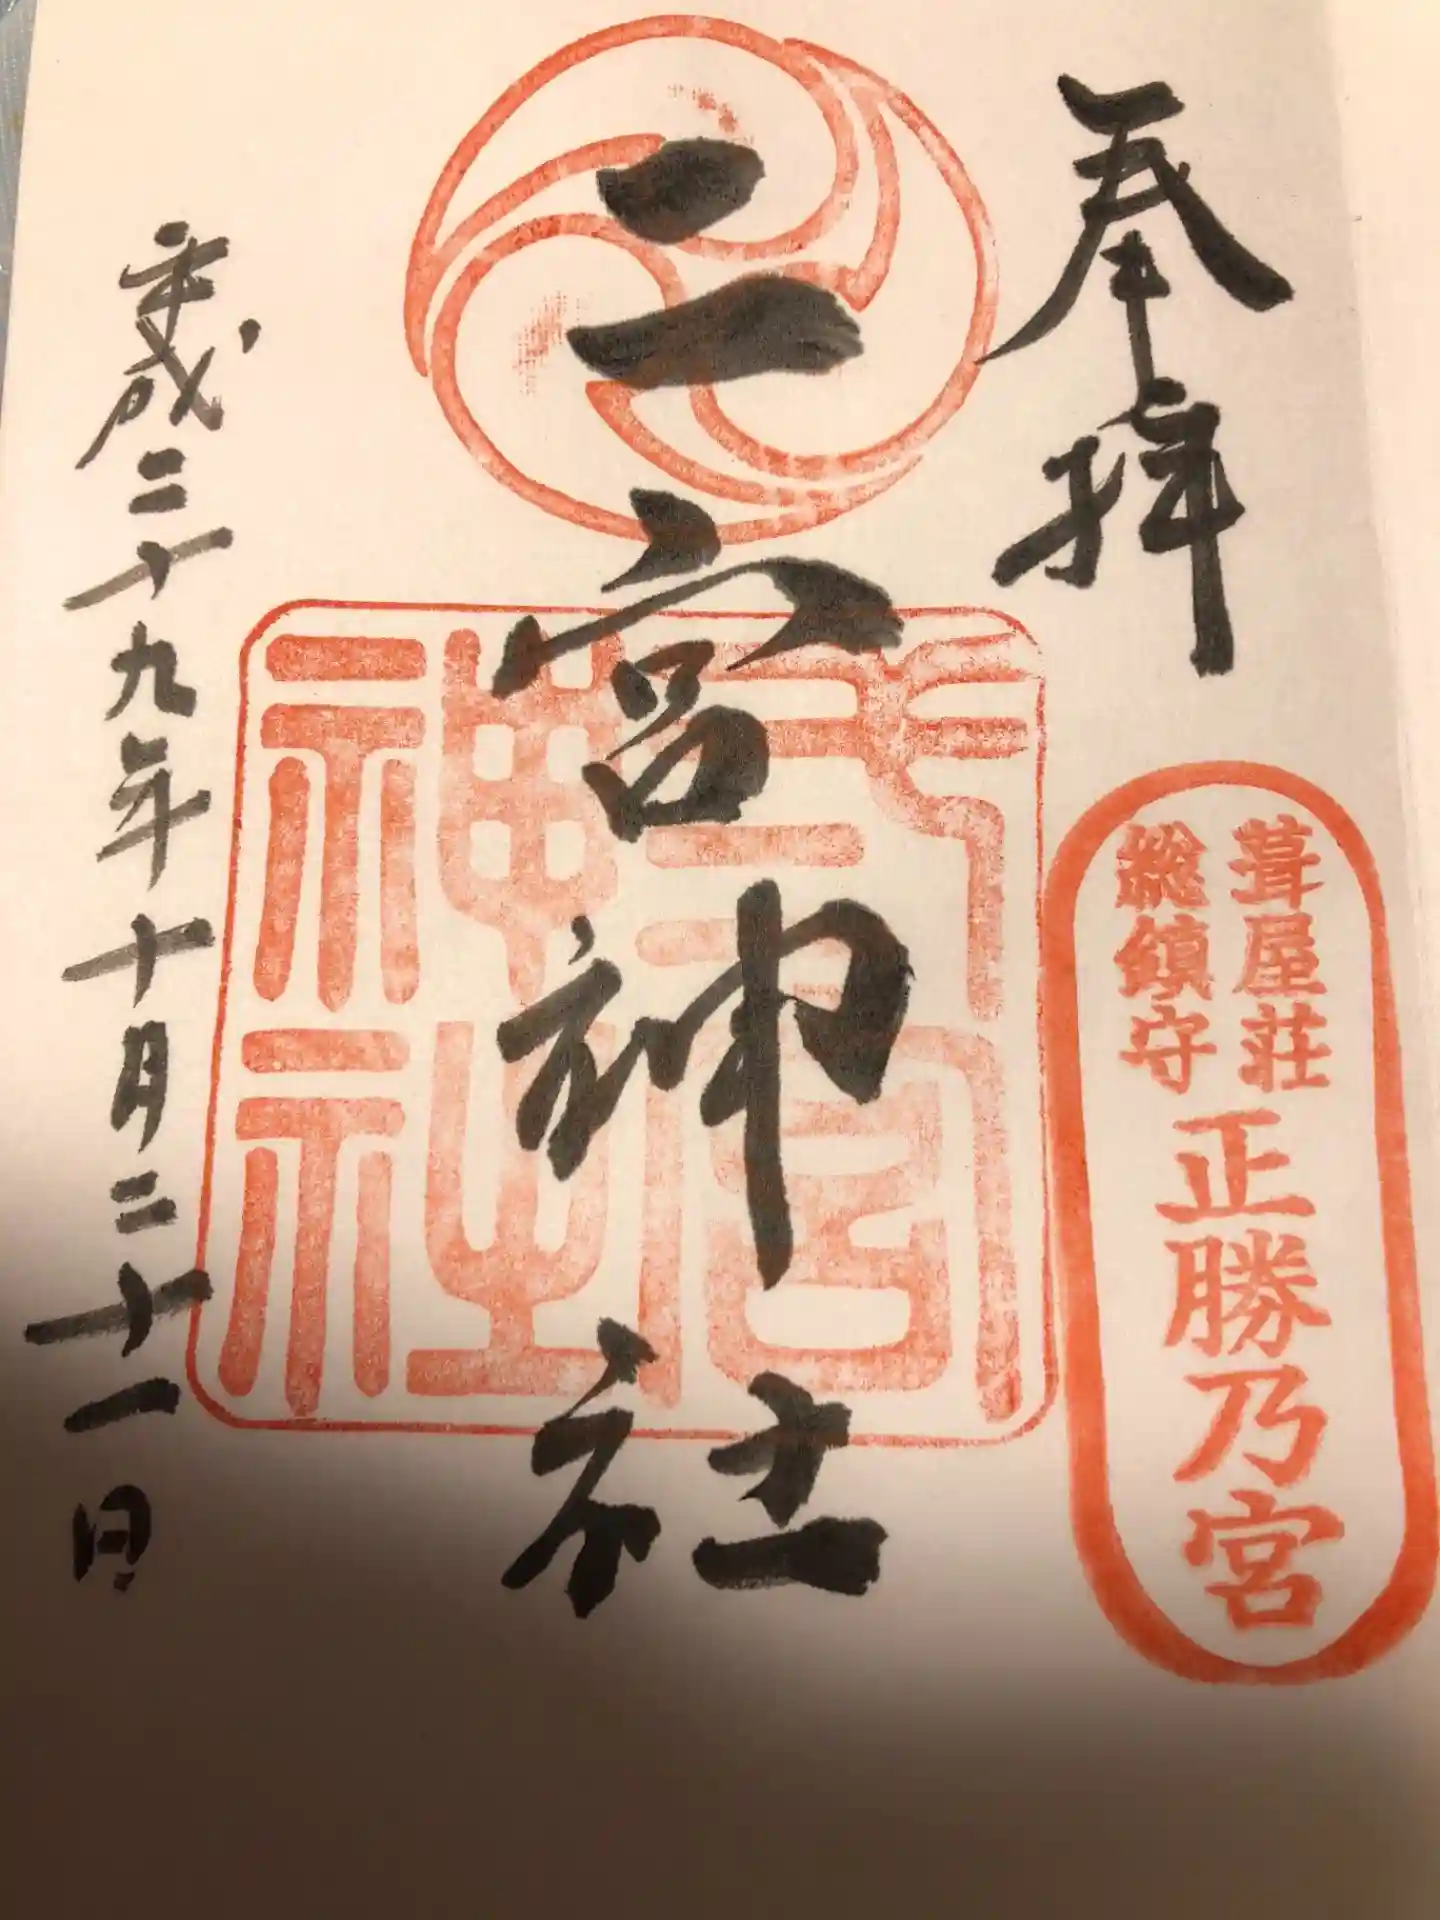 奉拝
葺屋荘
総鎮守
正勝乃宮
二宮神社
弍宮
神社
平成二十九年十月二十一日